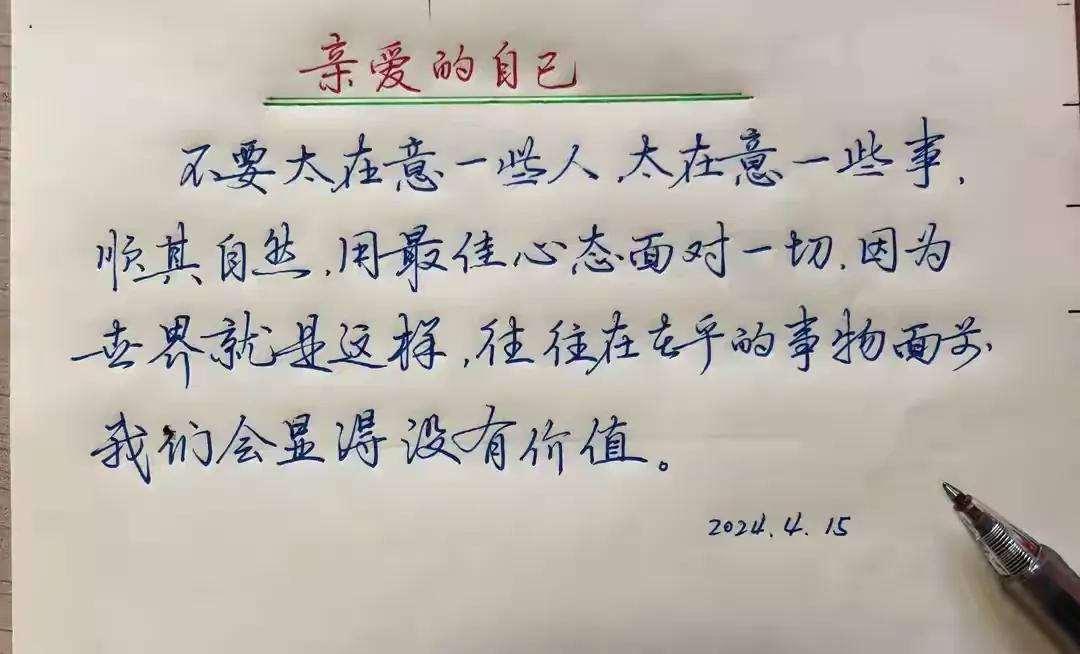 亲爱的自己
不要太在意一些人,太在意一些事,
顺其自然,用最佳心态面对一切,因为
世界就是这样,往往在在乎的事物面前,
我们会显得没有价值。
2024.4.15